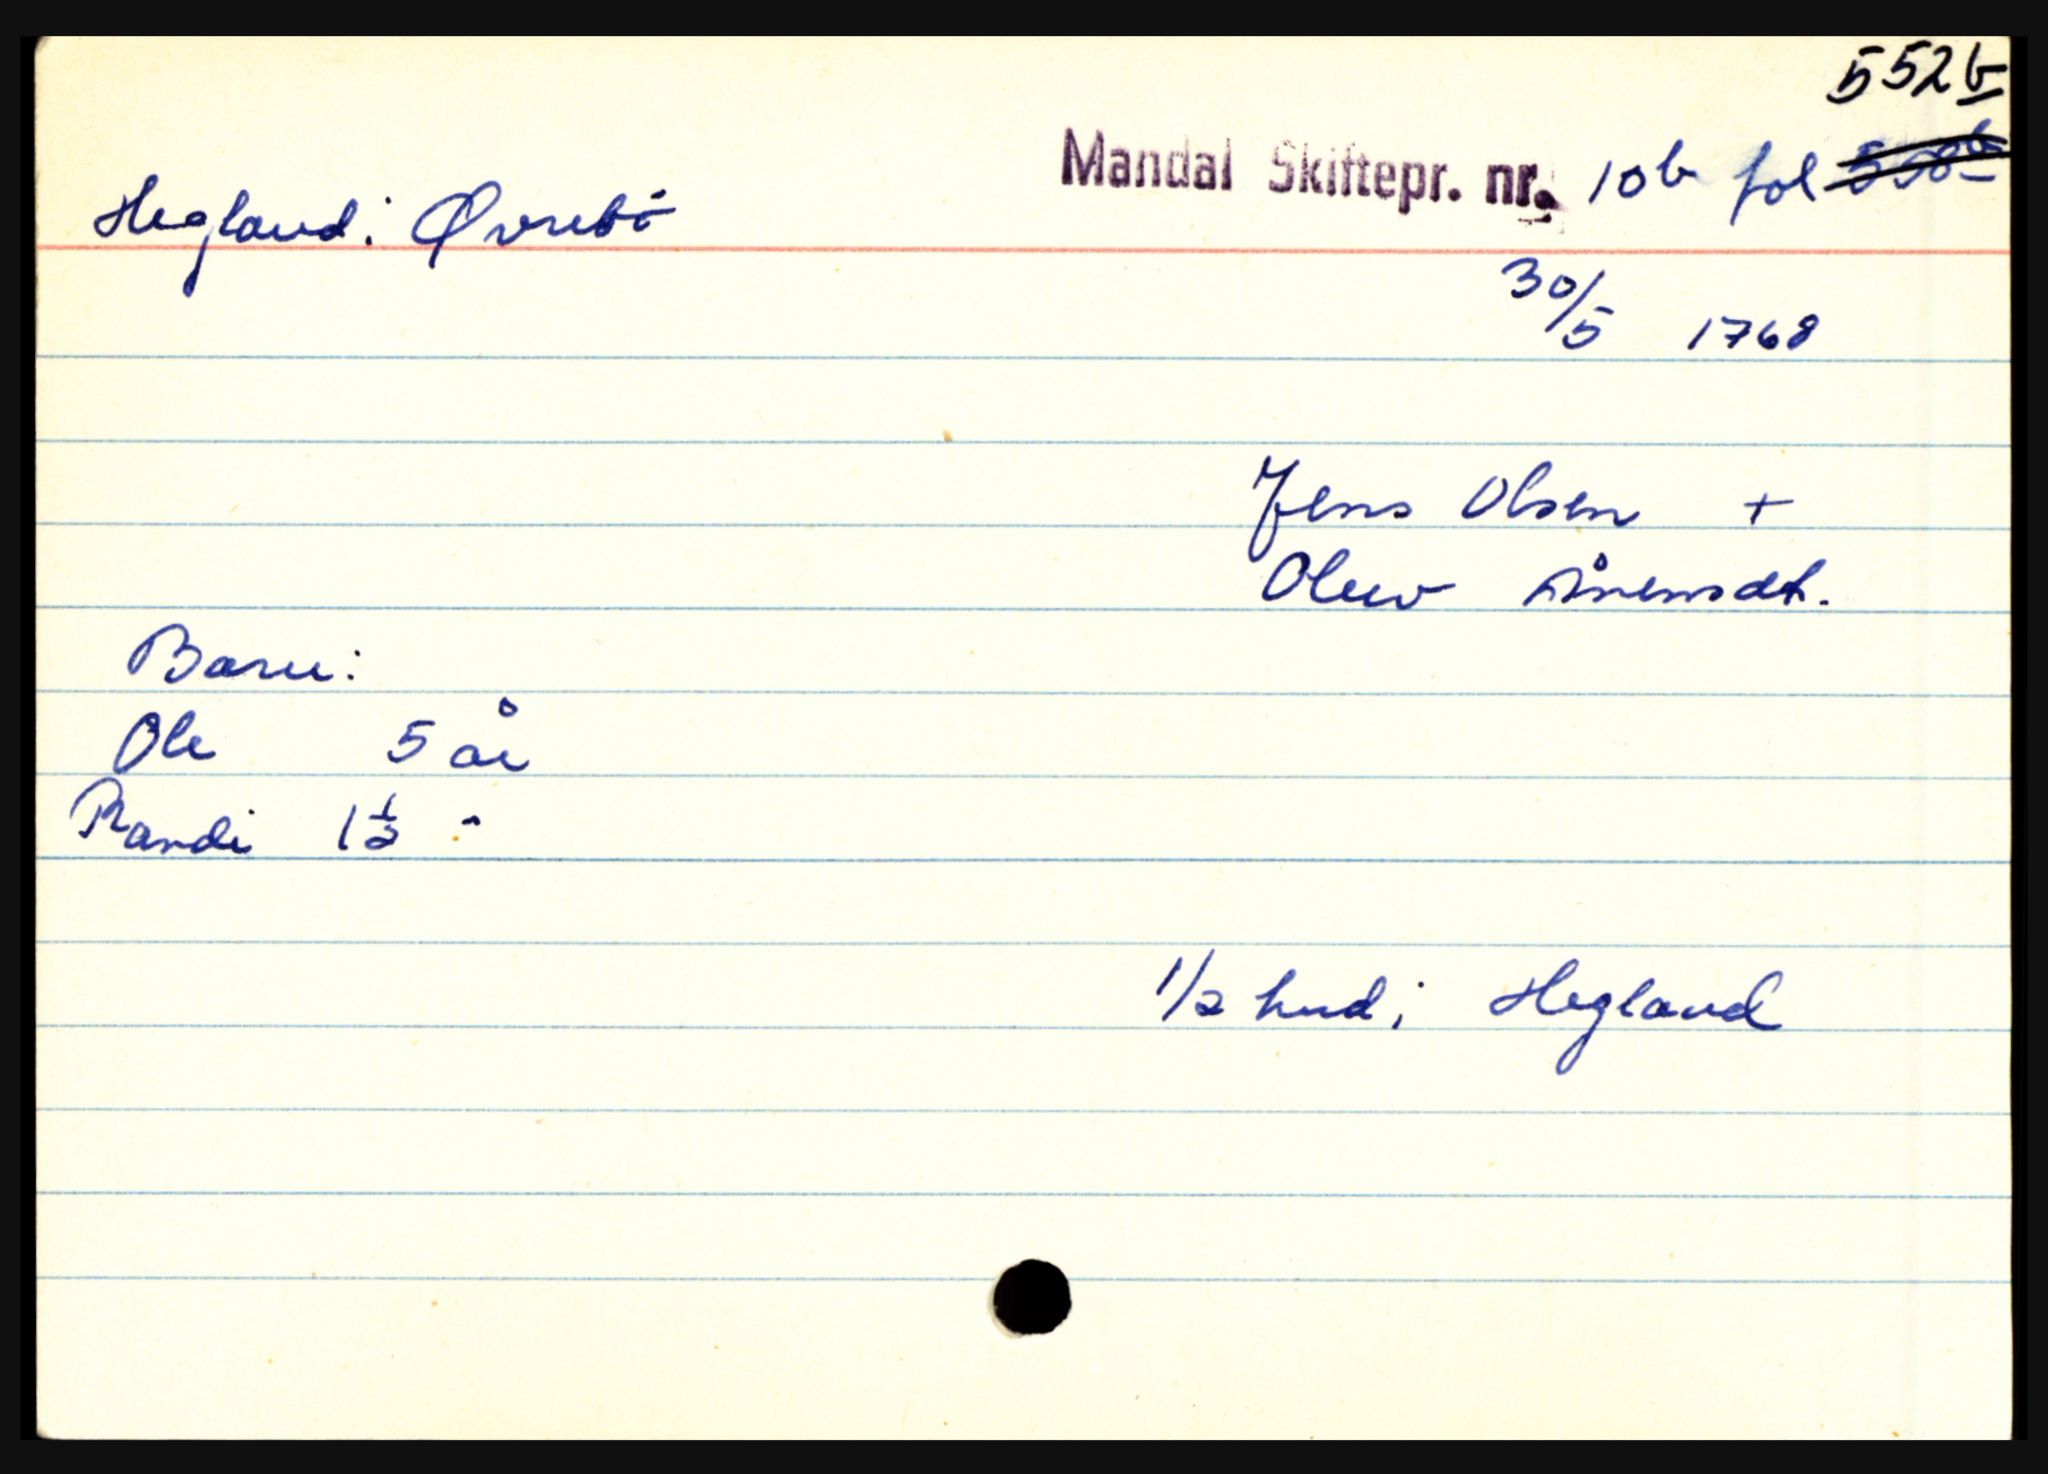 552b
Mandal Skiftepr. nr. 10b fol
Hegland: Øvrebö
30/5 1768
Jens Olsen +
Oleiv Ånensdt.
Barn:
Ole 5 år
Randi 1½ "
1/2 hud i Hegland